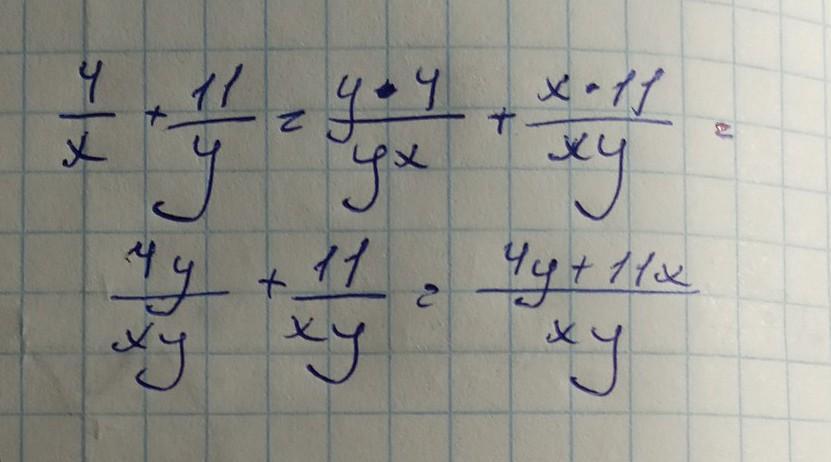 4/x + 11/y = y·4/yx + x·11/xy =
4y/xy + 11/xy = 4y+11x/xy